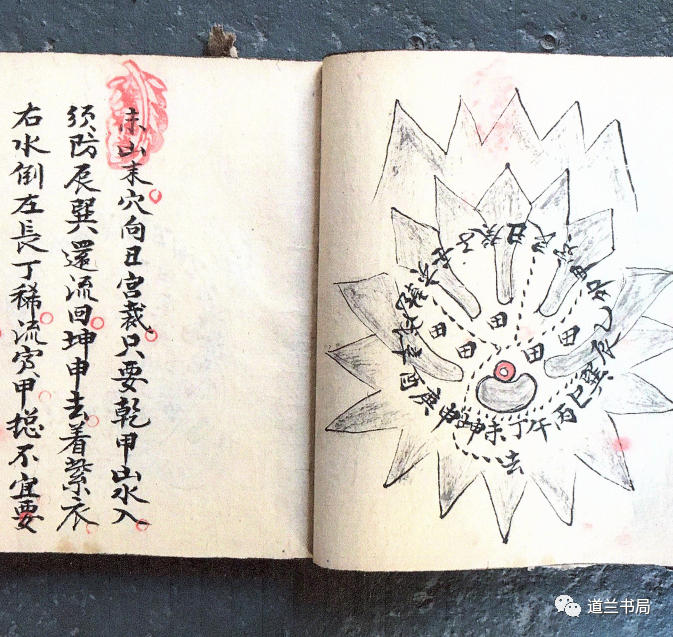 未山末穴向丑宫裁只要乾甲山水入
须防辰巽還流囬坤申去着紫衣
右水倒左長丁稀流窮甲
不宜要
子癸丑艮寅甲卯乙辰巽巳丙午丁未坤申庚酉辛
田
田
田
田
田
去
道兰书局